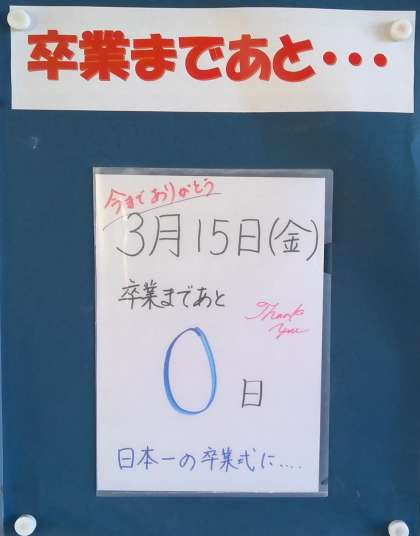 卒業まであと・・・
今までありがとう
3月15日(金)
卒業まであと
Thank
you
0日
日本一の卒業式に....